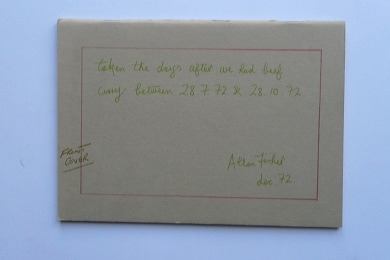 taken the days after we had beef
curry between 28.7.72 & 28.10.72
FRONT
COVER
Allen Fisher
dec. 72